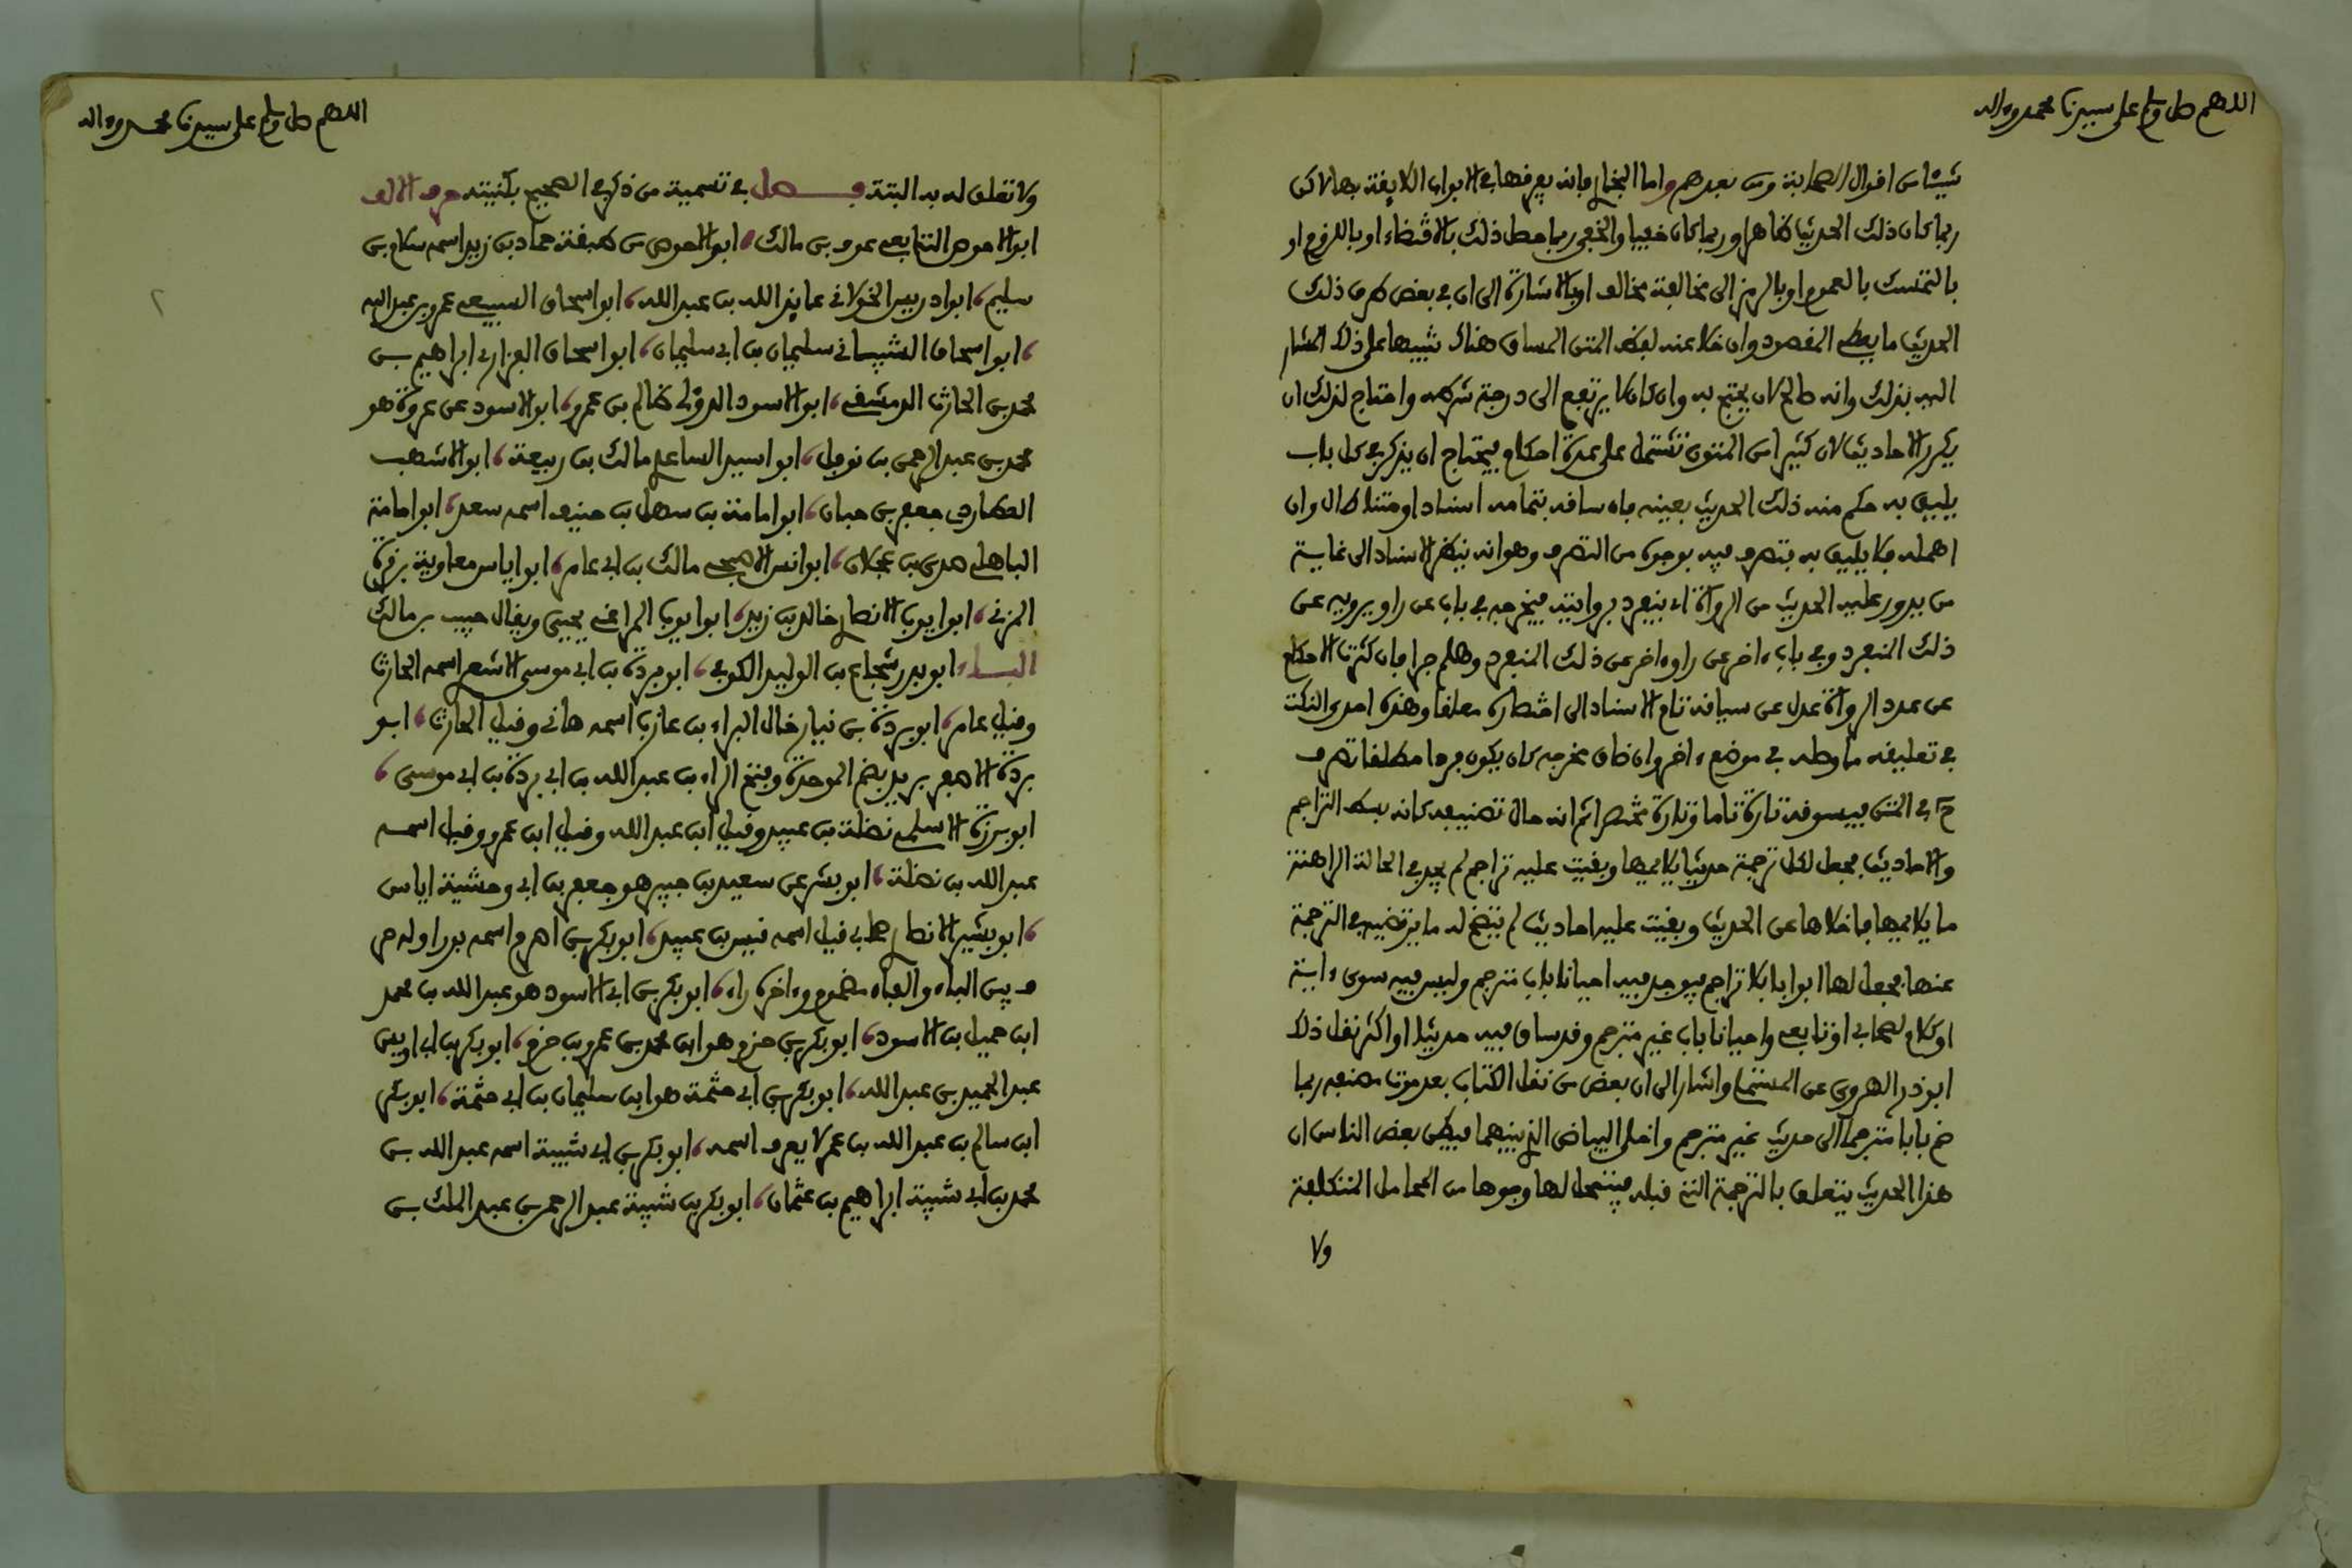 اللهم صل وسلم على سيدنا محمد وءاله
شيئا من اقوال الصحابة ومن بعدهم واما البخاري فانه يفرقها في الابواب اللايقة بها لاكن
ربما كان ذلك الحديث ظاهرا وربما كان خفيا والخفي ربما حصل ذلك بالاقتضاء او باللزوم او
بالتمسك بالعموم او بالرمز الى مخالفة مخالف او بالاشارة الى ان في بعض طرق ذلك
الحديث ما يعطي المقصود وان خلا عنه لفظ المتن المساق هناك تنبيها على ذلك المشار
اليه بذلك وانه صالح لان يحتج به وان كان لا يرتفع الى درجة شرطه واحتاج لذلك ان
يكرر الاحاديث لان كثيرا من المتون تشتمل على عدة احكام فيحتاج ان يذكر في كل باب
يليق به حكم منه ذلك الحديث بعينه فان ساقه بتمامه اسنادا ومتنا طال وان
اهمله فلا يليق به فتصرف فيه بوجوه من التصرف وهو انه ينظر الاسناد الى غاية
من يدور عليه الحديث من الرواة اي ينفرد بروايته فيخرجه في باب عن راو يرويه عن
ذلك المنفرد وفي باب ءاخر عن راو ءاخر عن ذلك المنفرد وهلم جرا فان كثرت الاحكام
عن عدد الرواة عدل عن سياقة تام الاسناد الى اختصاره معلقا وهذه احدى النكت
في تعليقه ما وصله في موضع ءاخر وان ضاق مخرجه كان يكون فردا مطلقا تصرف
ح في المتن فيسوقه تارة تاما وتارة مختصرا ثم انه حال تصنيفه كانه بسط التراجم
والاحاديث فجعل لكل ترجمة حديثا يلايمها وبقيت عليه تراجم لم يجد في الحالة الراهنة
ما يلايمها فاخلاها عن الحديث وبقيت عليه احاديث لم يتضح له ما يرتضيه في الترجمة
عنها فجعل لها ابوابا بلا تراجم فيوجد فيه احيانا باب مترجم وليس فيه سوى ءاية
او كلام لصحابي او تابعي واحيانا باب غير مترجم وقد ساق فيه حديثا او اكثر نقل ذلك
ابو ذر الهروي عن المستملي واشار الى ان بعض من نقل الكتاب بعد موت مصنفه ربما
ضم بابا مترجما الى حديث غير مترجم واخلى البياض الذي بينهما فيظن بعض الناس ان
هذا الحديث يتعلق بالترجمة التي قبله فيتمحل لها وجوها من المحامل المتكلفة
ولا
اللهم صل وسلم على سيدنا محمد وءاله
ولا تعلق له به البتة فصل في تسمية من ذكر في الصحيح بكنيته حرف الالف
ابو الاحوص التابعي عوف بن مالك، ابو الاحوص من طبقة حماد بن زيد اسمه سلام بن
سليم، ابو ادريس الخولاني عايذ الله بن عبد الله، ابو اسحاق السبيعي عمرو بن عبد الله
، ابو اسحاق الشيباني سليمان بن ابي سليمان، ابو اسحاق الفزاري ابراهيم بن
محمد بن الحارث الدمشقي، ابو الاسود الدؤلي ظالم بن عمرو، ابو الاسود عن عروة هو
محمد بن عبد الرحمن بن نوفل، ابو اسيد الساعدي مالك بن ربيعة، ابو الاشهب
العطاردي جعفر بن حيان، ابو امامة بن سهل بن حنيف اسمه سعد، ابو امامة
الباهلي صدي بن عجلان، ابو انس الاصبحي مالك بن ابي عامر، ابو اياس معاوية بن قرة
المزني، ابو ايوب الانصاري خالد بن زيد، ابو ايوب المراغي يحيى ويقال حبيب بن مالك
الباء ابو بدر شجاع بن الوليد الكوفي، ابو بردة بن ابي موسى الاشعري اسمه الحارث
وقيل عامر، ابو بردة بن نيار خال البراء بن عازب اسمه هاني وقيل الحارث، ابو
بردة الاصغر بريد بضم الموحدة وفتح الراء بن عبد الله بن ابي بردة بن ابي موسى،
ابو برزة الاسلمي نضلة بن عبيد وقيل ابن عبد الله وقيل ابن عمرو وقيل اسمه
عبد الله بن نضلة، ابو بشر عن سعيد بن جبير هو جعفر بن ابي وحشية اياس
، ابو بشير الانصاري صحابي قيل اسمه قيس بن عبيد، ابو بكر بن اصرم اسمه بور اوله حر
ف بين الباء والفاء مضموم وءاخره راء، ابو بكر بن ابي الاسود هو عبد الله بن محمد
ابن حميد بن الاسود، ابو بكر بن حزم هو ابن محمد بن عمرو بن حزم، ابو بكر بن ابي اويس
عبد الحميد بن عبد الله، ابو بكر بن ابي حثمة هو ابن سليمان بن ابي حثمة، ابو بكر
ابن سالم بن عبد الله بن عمر لا يعرف اسمه، ابو بكر بن ابي شيبة اسمه عبد الله بن
محمد بن ابي شيبة ابراهيم بن عثمان، ابو بكر بن شيبة عبد الرحمن بن عبد الملك بن